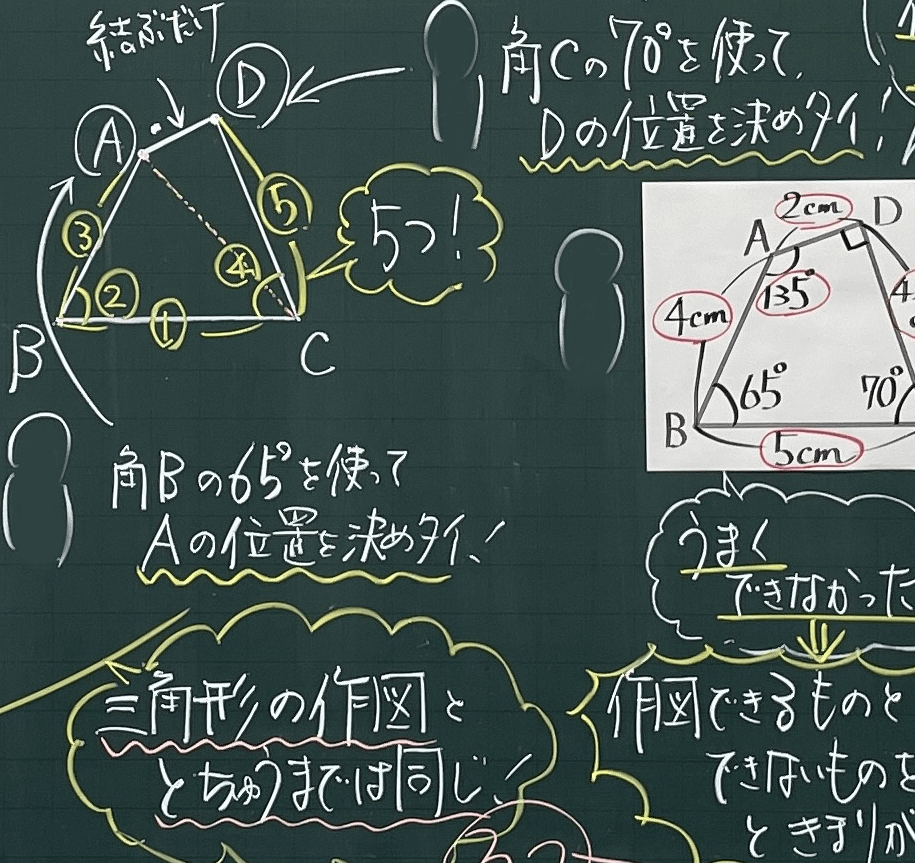 結ぶだけ
D
A
③
②
①
④
⑤
B
C
5つ!
角Cの70°を使って、
Dの位置を決めタイ!
2cm
A
D
135°
4cm
65°
70°
B
5cm
角Bの65°を使って
Aの位置を決めタイ!
うまく
できなかった
三角形の作図と
とちゅうまでは同じ!
作図できるものと
できないものを
ときまりが